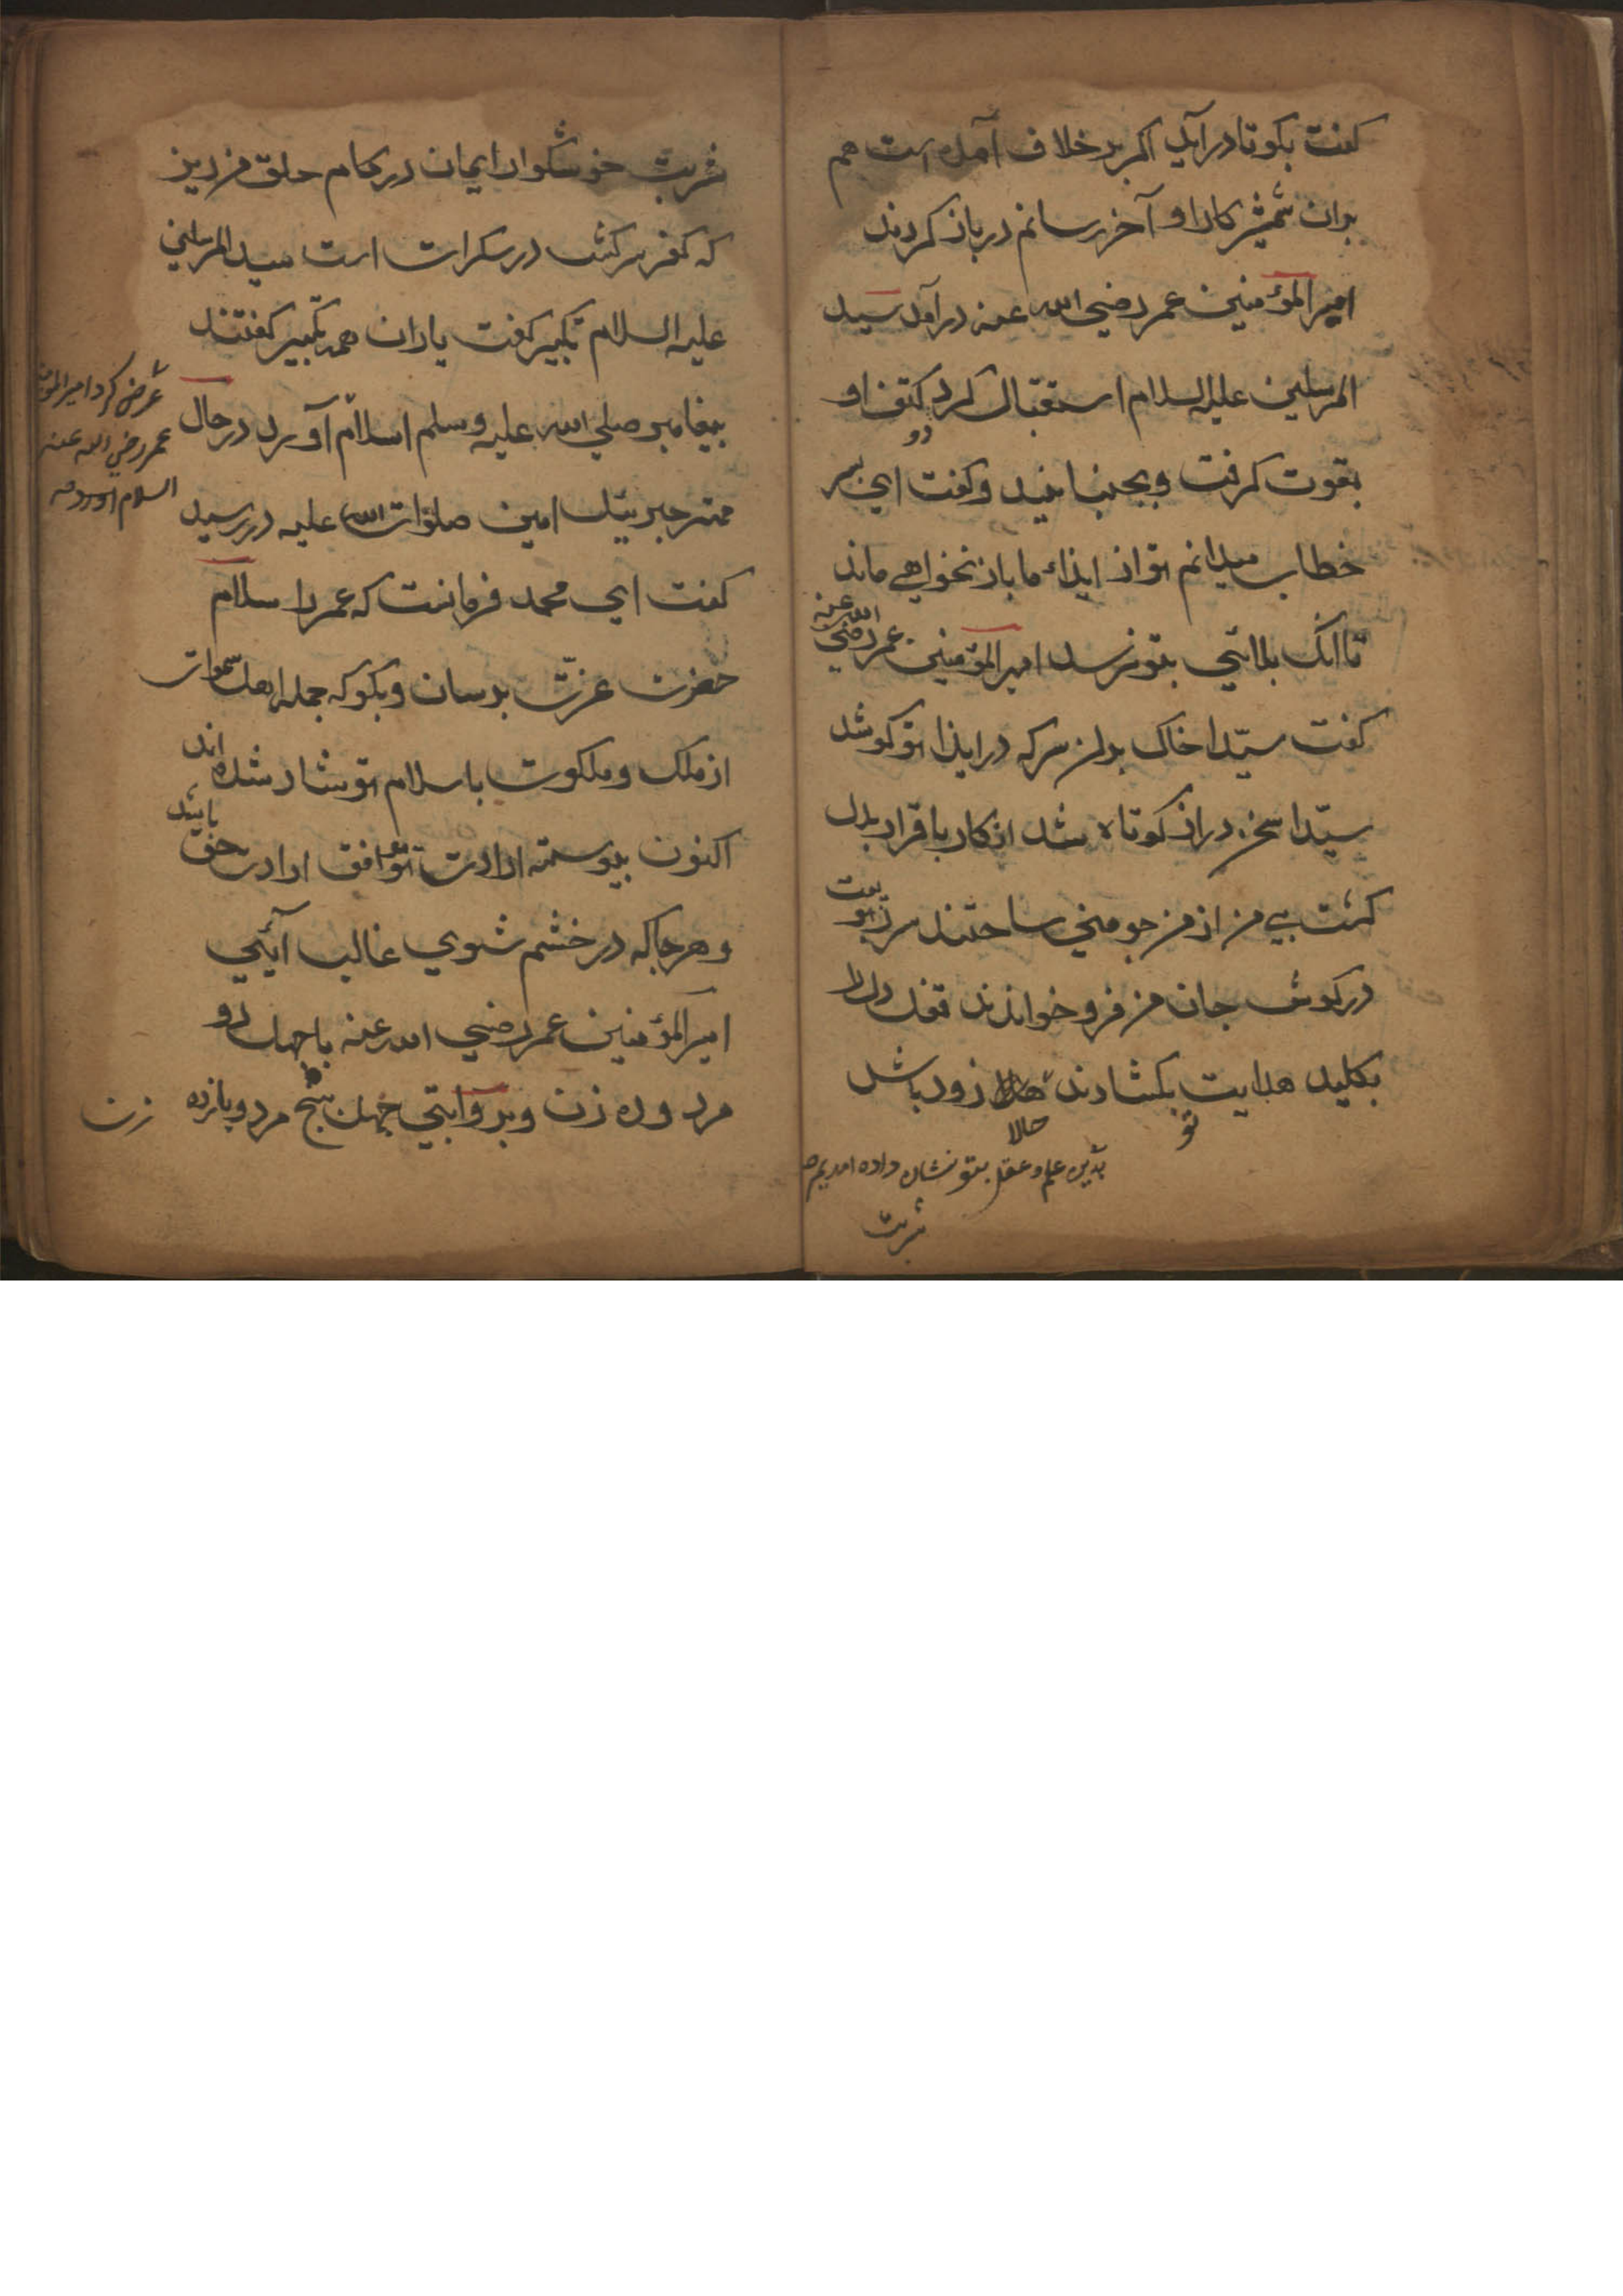 کفت بکو تا درآید اکر بر خلاف آمده است هم
بدان شمشیر کار او آخر رسانم در باز کردند
امیر المؤمنین عمر رضي الله عنه درآمد سید
المرسلین علیه السلام استقبال کرد کتف او
دو
بقوت کرفت و بجنبانید و کفت اي پسر
خطاب میدانم تو از ایذاء ما باز نخواهي ماند
تا انک بلائي بتو نرسد امیر المؤمنین عمر رضي الله عنه
کفت سیّدا خاک بدان سر که در ایذا تو کوشد
سیّدا سخن دراز کوتاه شد انکار باقرار بدل
کشت بي من از من جو مني ساختند سر
در کوش جان من فرو خواندند قفل دل را
بکلید هدایت بکشادند زود باش
تو
حالا
بدین علم و عقل بتو نشان داده
شربت
شربت خوشکوار ایمان در کام حلق من ریز
که کفر سرکش در سکرات است سید المرسلین
علیه السلام تکبیر کفت یاران همه تکبیر کفتند
پیغامبر صلي الله علیه وسلم اسلام آورد در حال
عرض کرد امیر المومنین
عمر رضي الله عنه
اسلام
مهتر جبرئیل امین صلوات الله علیه در رسید
کفت اي محمد فرمانست که عمر را سلام
حضرت عزّت برسان و بکو که جمله اهل سموات
از ملک و ملکوت باسلام تو شاد شده اند
اکنون پیوسته ارادت تو موافق ارادت حق باشد
و هر جا که در خشم شوي غالب آئي
امیر المؤمنین عمر رضي الله عنه با چهل دو
مرد و ده زن و بروایتي چهل پنج مرد و یازده زن